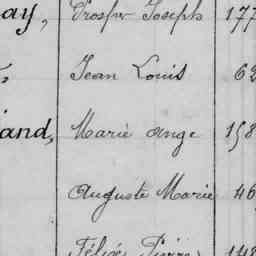 ay, Prosper Joseph 177
Jean Louis 62
and, Marie Ange 158
Auguste Marie 46
Félix Pierre 148